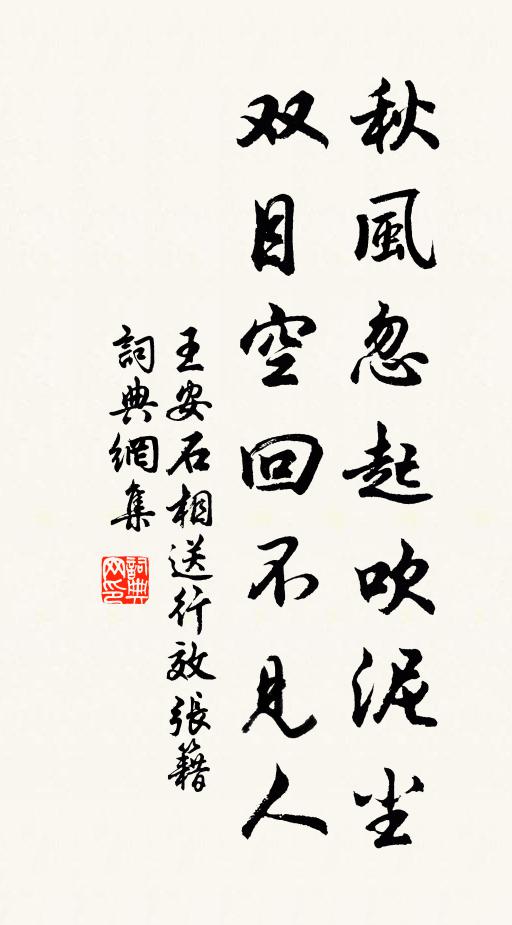 秋風忽起吹泥尘
双目空回不見人
王安石相送行效張籍
詞典網集
詞典网印